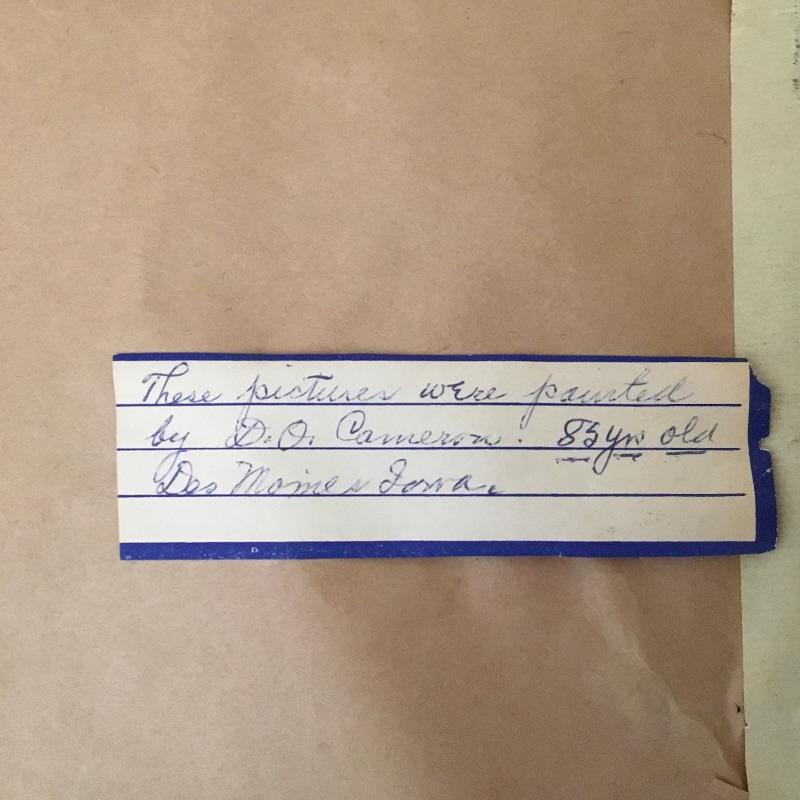 These pictures were painted
by D.O. Cameron. 83 yrs old
Des Moines Iowa.